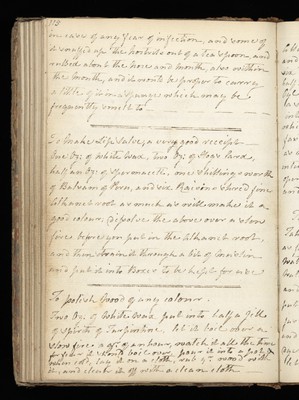 112
in case of any fear of infection, and some of
it snuffed up the nostrils out of a tea spoon and
rubbed about the nose and mouth, also within
the mouth, and it would be proper to carry
a little of it in a spunge which may be
frequently smelt to
To make Lip Salve, a very good receipt
One Oz: of white wax, two Oz: of Hogs lard,
half an Oz: of Spermaceti, one shillings worth
of Balsam of Peru, and six Raisins shred fine
Alkanet root as much as will make it a
good colour, dissolve the above over a slow
fire before you put in the Alkanet root,
and then strain it through a bit of muslin
and put it into Boxes to be kept for use
To polish Wood of any colour.
Two Oz: of White Wax put into half a Gill
of spirits of Turpentine, let it boil over a
slow fire a qr: of an hour, watch it all the time
for fear it should boil over, pour it into a pot &
when cold, lay it on a cloth, rub yr: wood with
it, and clean it off with a clean cloth